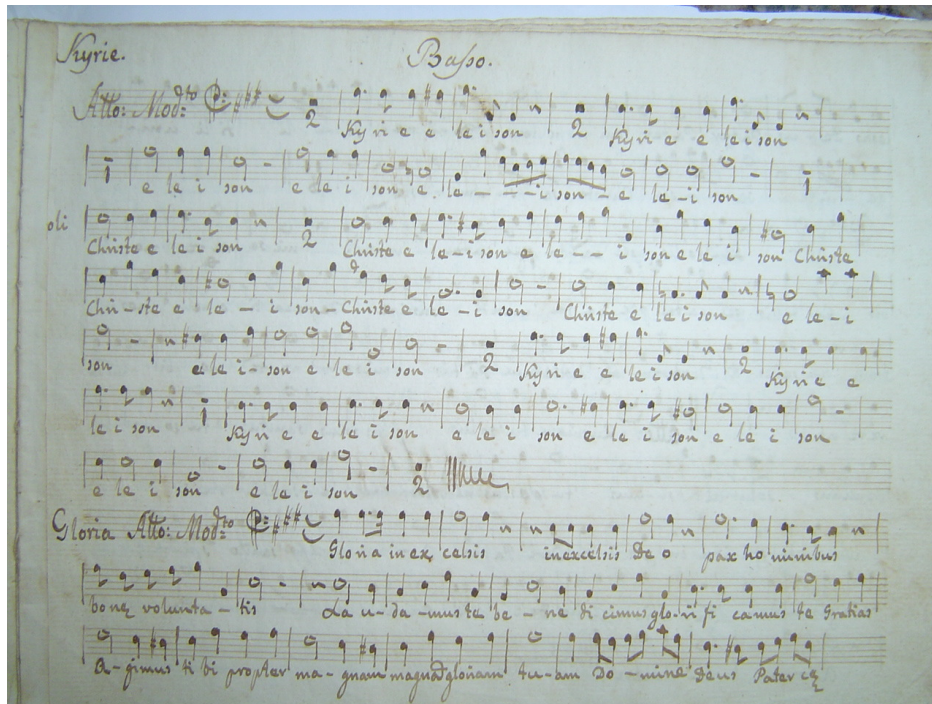 Kyrie. Basso.
Allto: Mod:to 2 Kyrie e leison 2 Kyrie e leison
1 e le i son e le i son e le - - - i son - e le - i son 1
oli Christe e le i son 2 Christe e le - i son e le - - i son e le i son Christe
Chri - ste e le - i son - Christe e le - i son Christe e le i son e le - i
son e le i - son e le i son 2 Kyri e e le i son 2 Kyri e e
le i son 1 Kyri e e le i son e le i son e le i son e le i son
e le i son e le i son 2
Gloria Allto: Mod:to Gloria in ex celsis in excelsis De o pax ho minibus
bonę volunta - tis La u - da - mus te be - ne di cimus glo - ri fi camus te Gratias
A - gimus ti bi propter ma - gnam magnā gloriam tu - am Do - mine Deus Pater cę